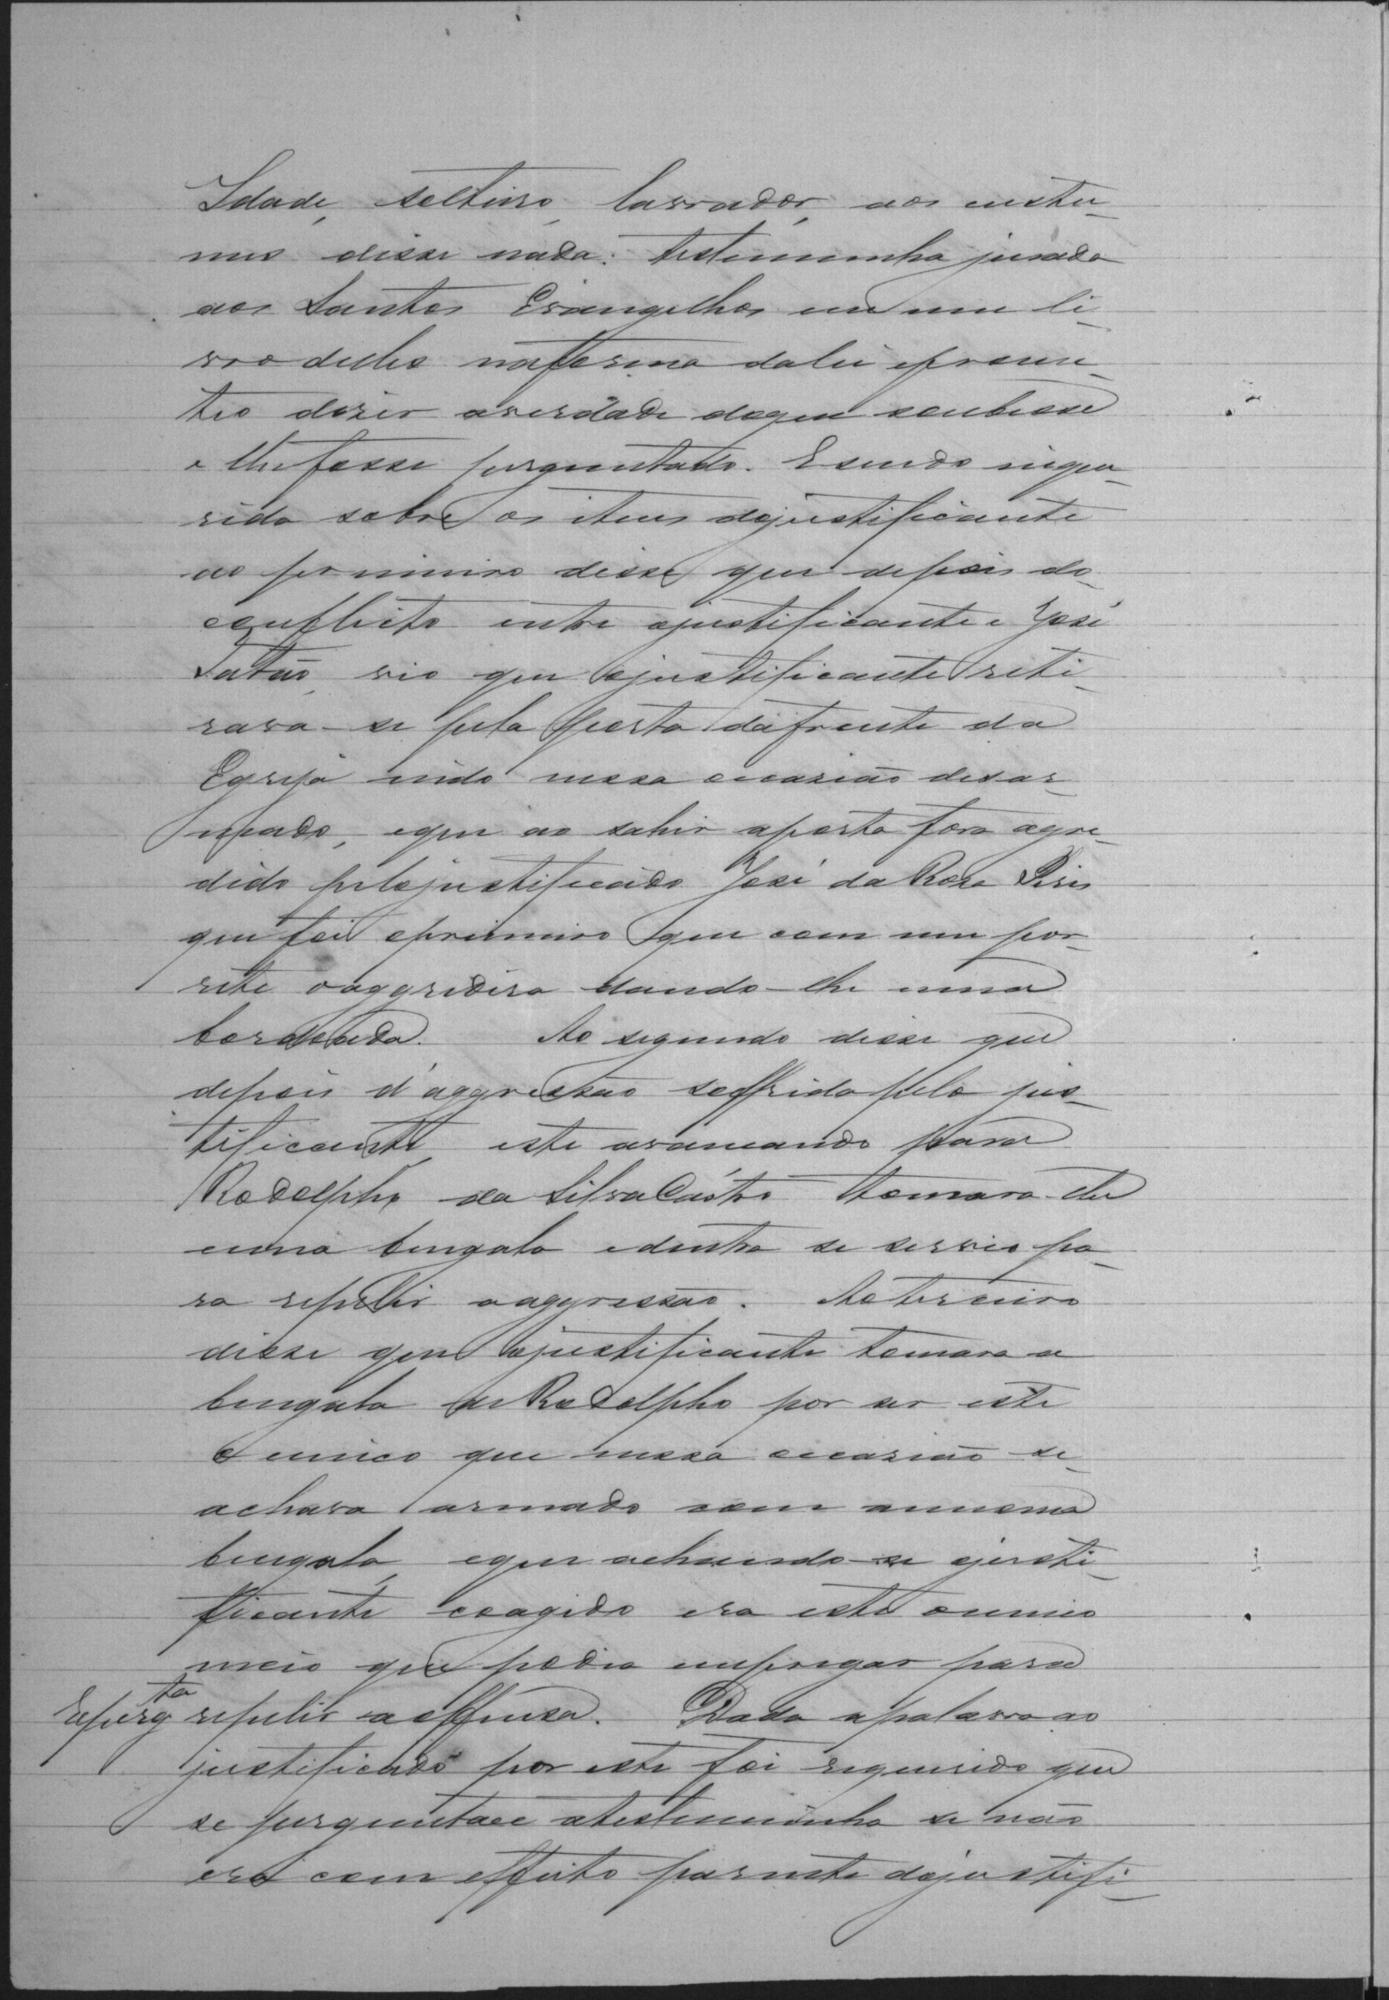 Idade, solteiro, lavrador, aos costu-
mes disse nada: testemunha jurada
aos Santos Evangelhos em um li-
vro delles na forma da lei e prome-
teo dizer a verdade do que soubesse
e lhe fosse perguntado. E sendo inque-
rida sobre os itens do justificante
ao primeiro disse que depois do
conflicto entre o justificante e José
Tatão, vio que o justificante reti-
rava-se pela porta da frente da
Egreja indo nessa occasião desar-
mado, e que ao sahir a porta fora agre-
dido pelo justificado José da Rosa Pires
que foi o primeiro que com um por-
rete o aggredira dando-lhe uma
bordoada. Ao segundo disse que
depois d'aggressão soffrida pelo jus-
tificante, este avancando para
Rodolpho da Silva Castro tomara-lhe
uma bengala e desta se servio pa-
ra repellir a aggressão. Ao terceiro
disse que o justificante tomara a
bengala de Rodolpho por ser este
o unico que nessa occasião se
achava armado com a mesma
bengala, e que achando-se o justi-
ficante coagido era este o unico
meio que podia empregar para
Reperg.ta repelir a offensa. Dada a palavra ao
justificado por este foi requerido que
se perguntace a testemunha se não
era com effeito parente do justifi-